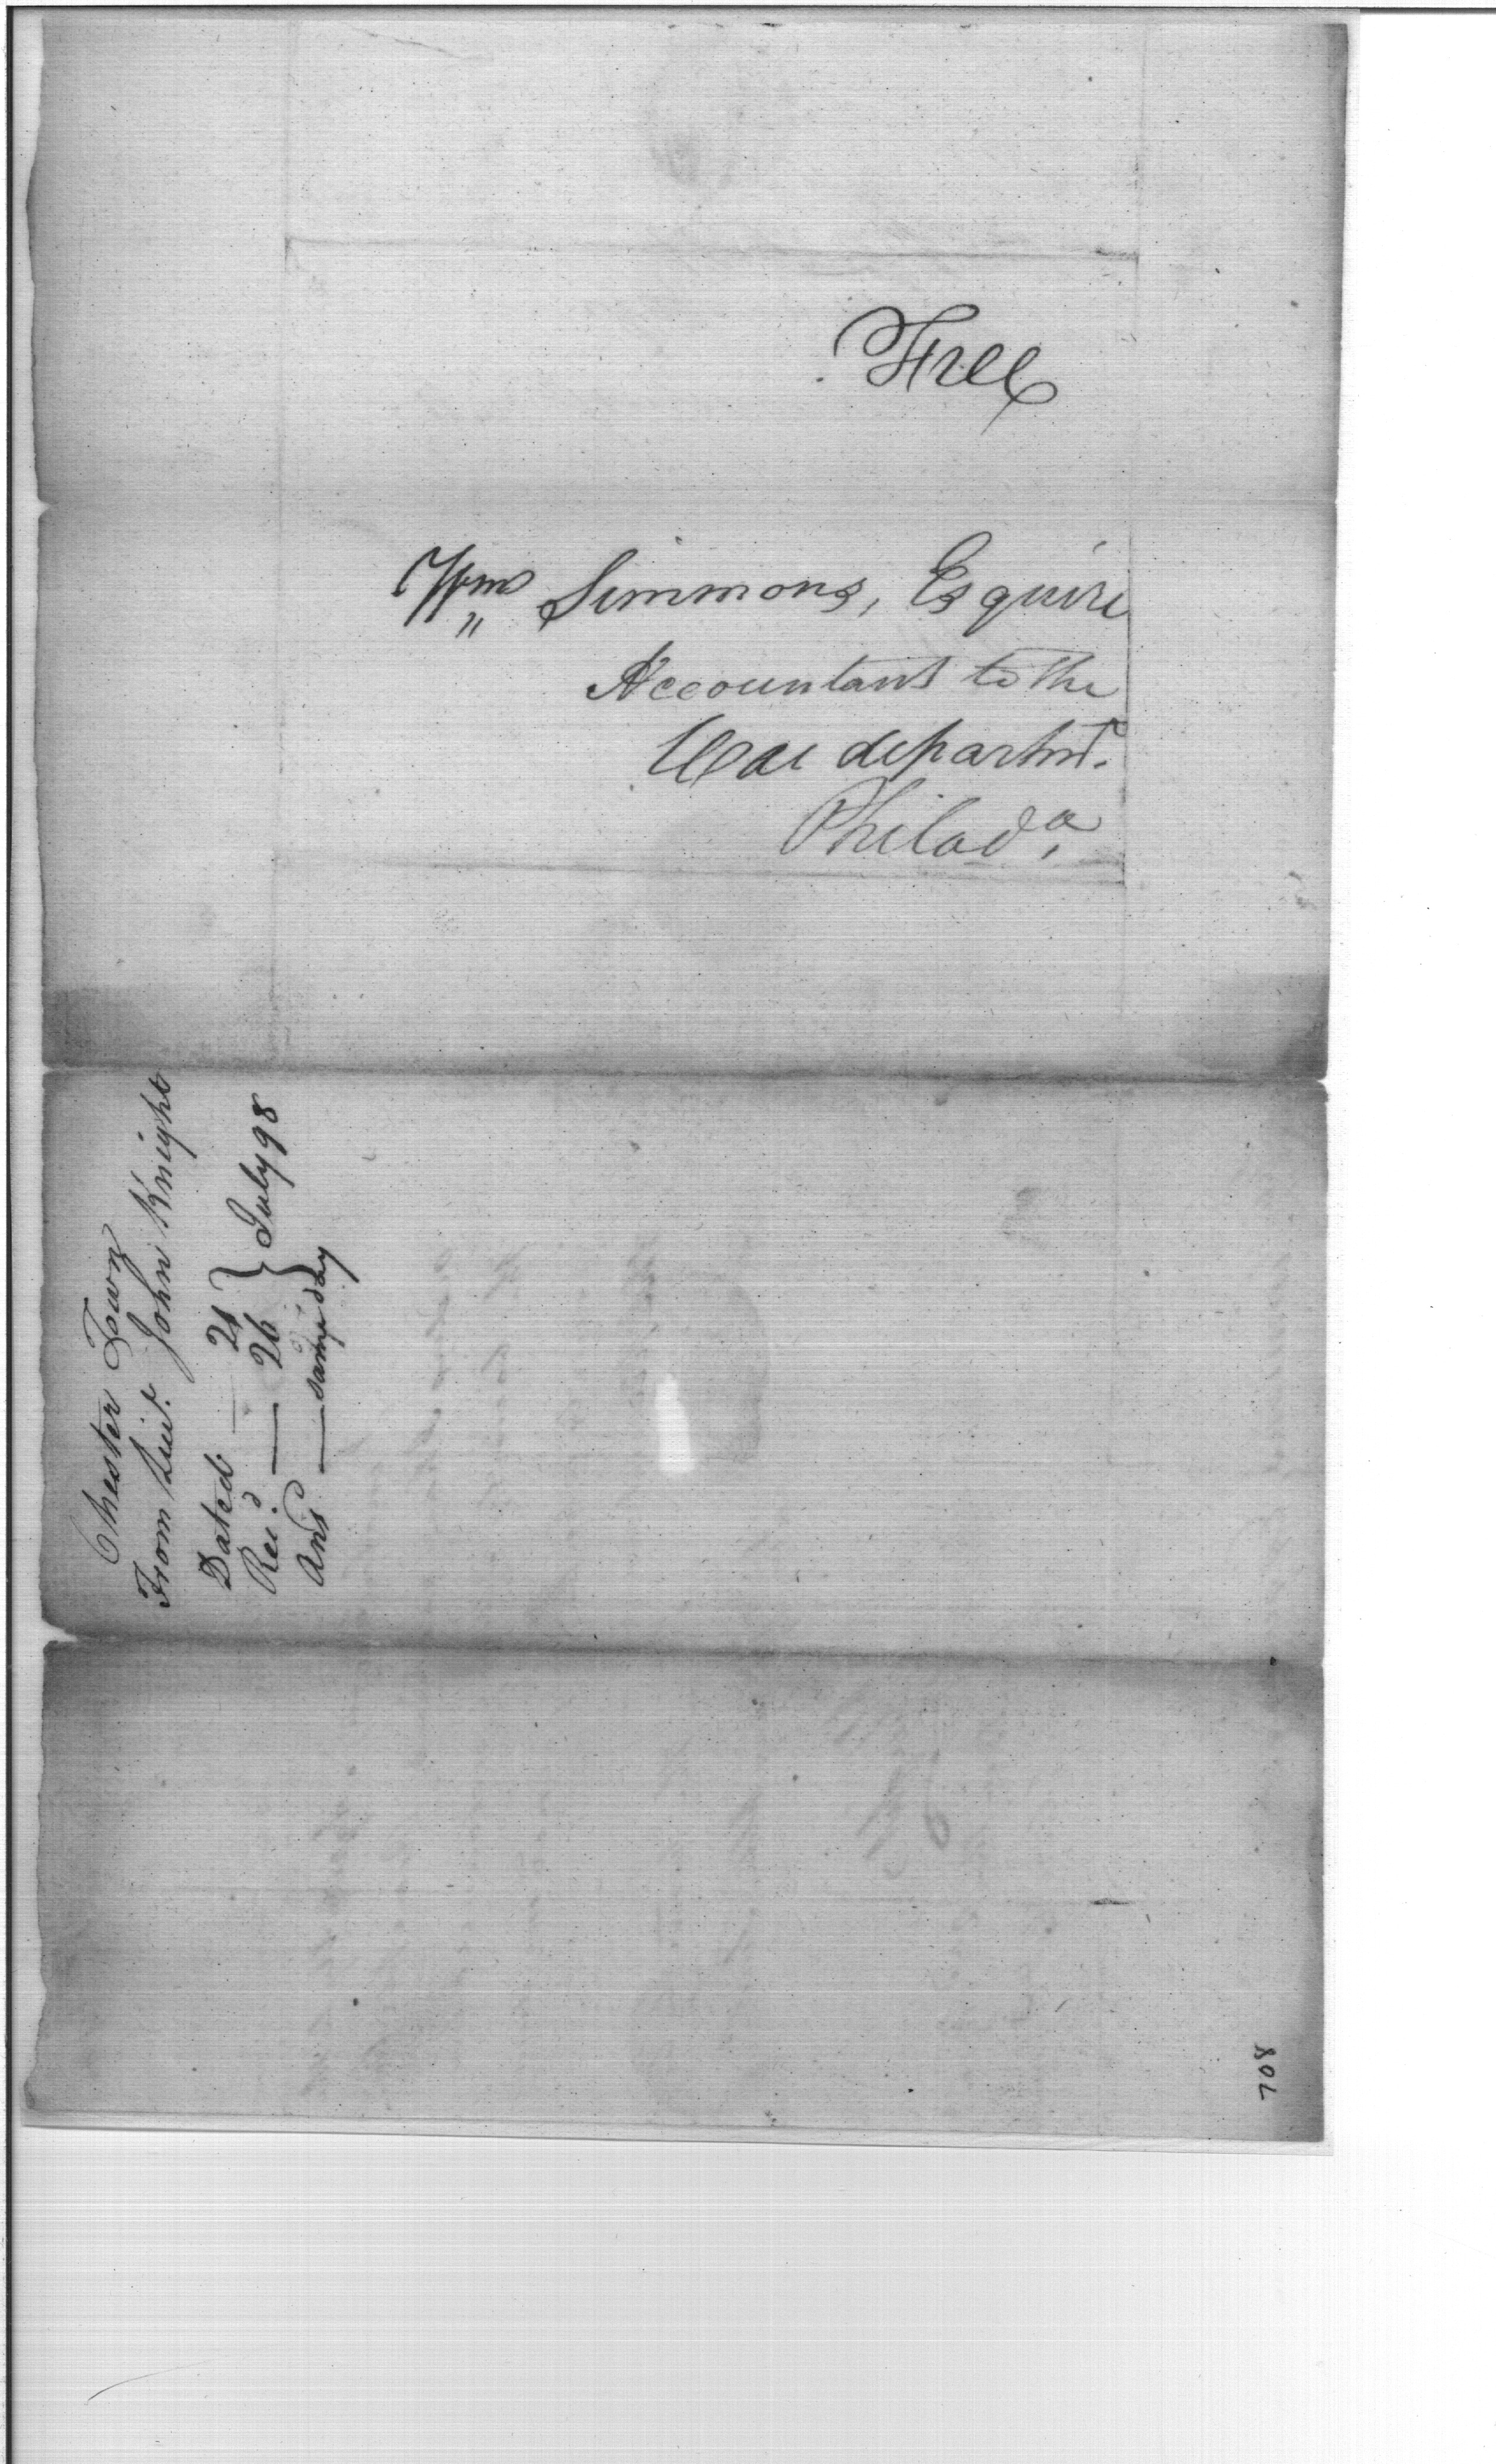 Free
Wm Simmons, Esquire
Accountant to the
War departmt.
Philada.
Chester Town
From Lieut. John Knight
Dated — 21 } July 98
Recd. — 26
Ansd — same day
708